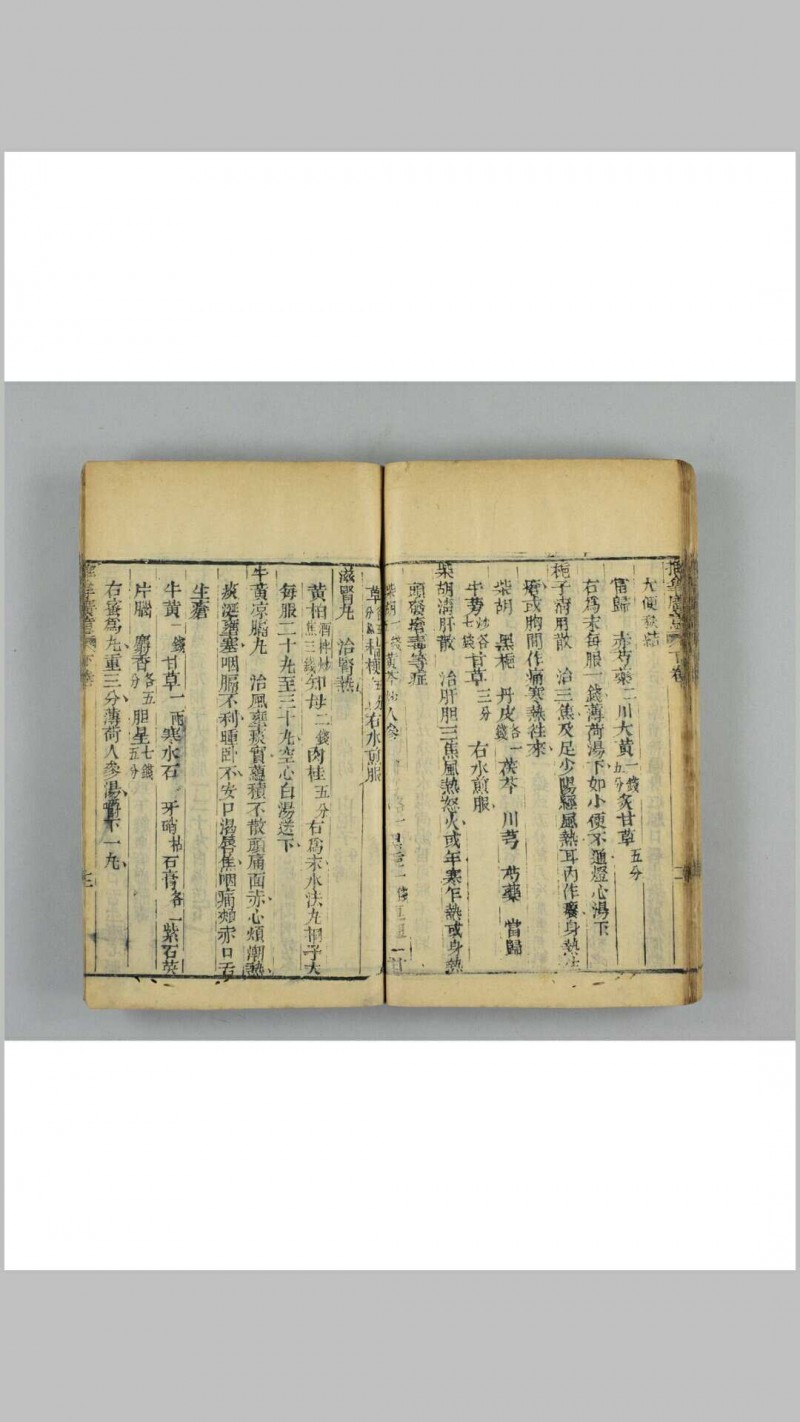 大便秘結
當歸 赤芍藥 二 川大黃 一錢五分 炙甘草 五分
右爲末每服一錢薄荷湯下如小便不通燈心湯下
梔子清肝散 治三焦及足少陽經風熱耳內作癢身熱
瘡或胸間作痛寒熱往來
柴胡 黑梔 丹皮 各一錢 茯苓 川芎 芍藥 當歸
牛蒡 炒各七錢 甘草 三分 右水煎服
柴胡清肝散 治肝胆三焦風熱怒火或乍寒乍熱或身熱
頭發瘡毒等症
柴胡 一錢 黃芩 人參
草 右水煎服
滋腎丸 治腎熱
黃柏 酒拌炒焦三錢 知母 二錢 肉桂 五分 右爲末水法丸桐子大
每服二十丸至三十丸空心白湯送下
牛黃凉膈丸 治風壅痰實蘊積不散頭痛面赤心煩潮熱
痰涎壅塞咽膈不利睡卧不安口渴唇焦咽痛頰赤口舌
生瘡
牛黃 一錢 甘草 一兩 寒水石 牙硝 枯 石膏 各一 紫石英
片腦 麝香 各五分 胆星 七錢五分
右蜜爲丸重三分薄荷人參湯嚼下一丸